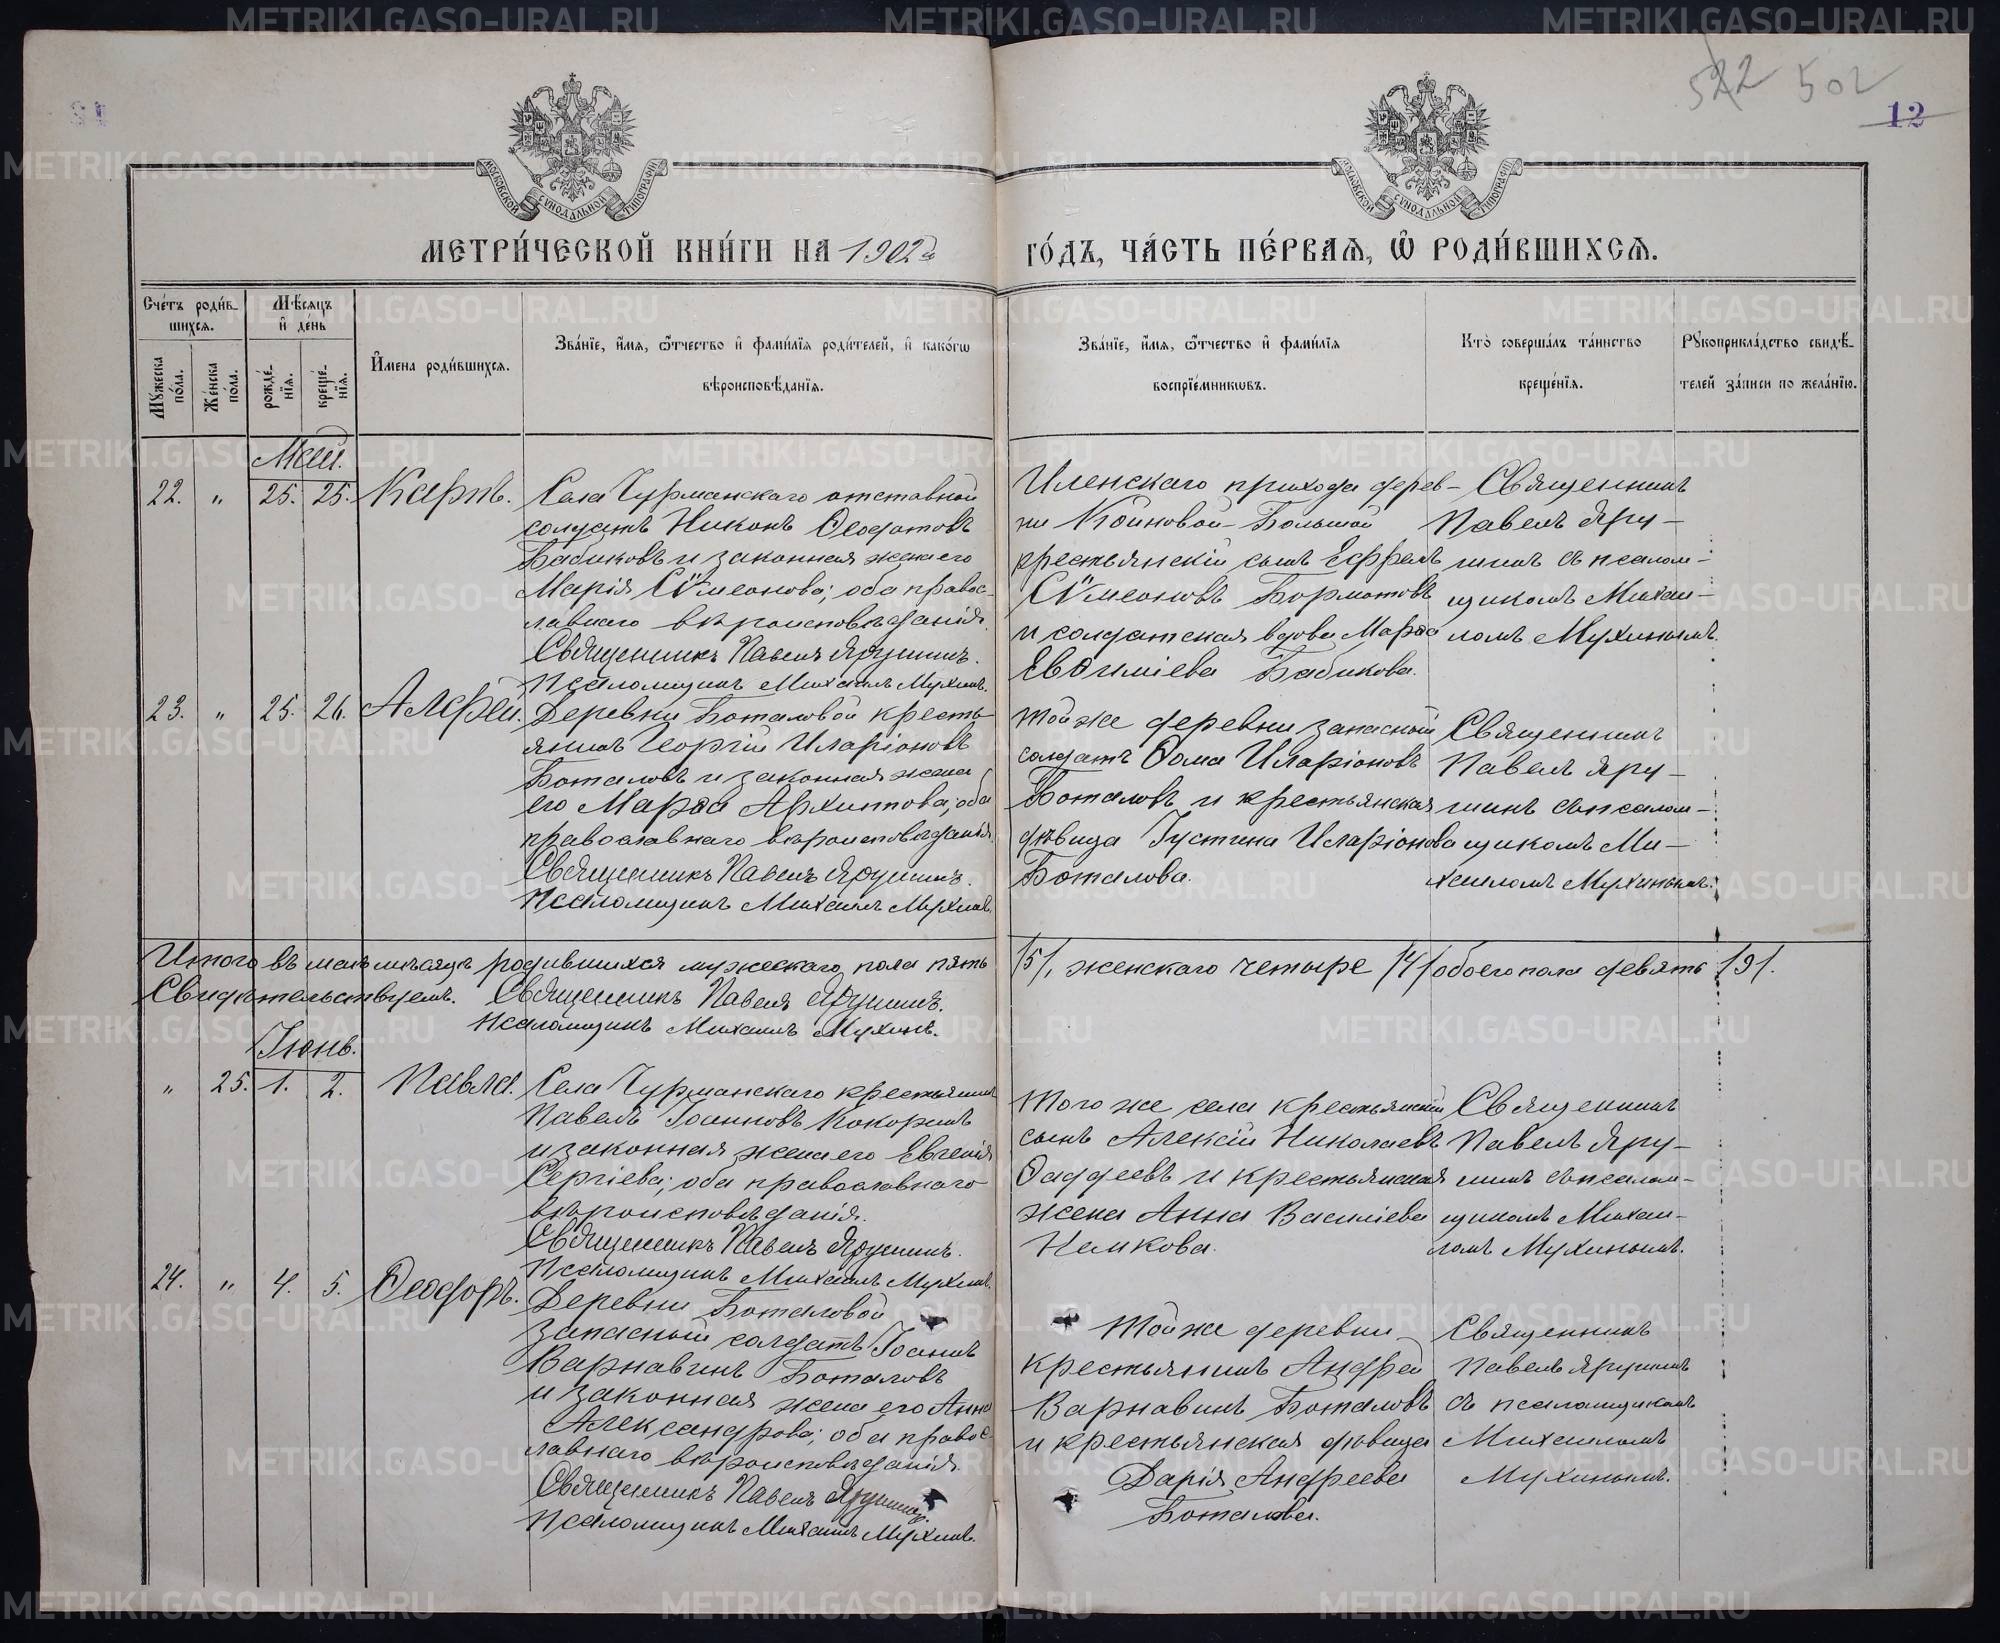 522 502
12
МОСКОВСКОЙ СУНОДАЛЬНОЙ ТИПОГРАФІИ
МОСКОВСКОЙ СУНОДАЛЬНОЙ ТИПОГРАФІИ
МЕТРИ́ЧЕСКОЙ КНИ́ГИ НА 1902й
ГО́ДЪ, ЧА́СТЬ ПЕ́РВАѦ, Ѡ҆ РОДИ́ВШИХСѦ.
Сче́тъ роди́в-
шихсѧ.
Мѣ́сѧцъ
и҆ де́нь
Мꙋ́жеска
по́ла.
Же́нска
по́ла.
рожде́-
нїѧ.
креще́-
нїѧ.
И҆мена роди́вшихсѧ.
Зва́нїе, и҆́мѧ, ѻ҆́тчество и҆ фами́лїѧ роди́телей, и҆ како́гѡ
вѣроисповѣ́данїѧ.
Зва́нїе, и҆́мѧ, ѻ҆́тчество и҆ фами́лїѧ
воспрїе́мникѡвъ.
Кто̀ соверша́лъ та́инство
креще́нїѧ.
Рꙋкоприкла́дство свидѣ́-
телей за́писи по жела́нїю.
Май.
22. „ 25. 25. Карпъ.
Села Чурманскаго отставной
солдатъ Никонъ Ѳеодотовъ
Бабиковъ и законная жена его
Марія Сѷмеонова; оба правос-
лавнаго вѣроисповѣданія.
Священникъ Павелъ Ярушинъ.
Псаломщикъ Михаилъ Мухинъ.
Иленскаго прихода дерев-
ни Койновой-Большой
крестьянскій сынъ Ефремъ
Сѷмеоновъ Бормотовъ
и солдатская вдова Марѳа
Евѳиміева Бабикова.
Священникъ
Павелъ Яру-
шинъ съ псалом-
щикомъ Михаи-
ломъ Мухинымъ.
23. „ 25. 26. Алфей.
Деревни Боталовой кресть-
янинъ Георгій Иларіоновъ
Боталовъ и законная жена
его Марѳа Архипова; оба
православнаго вѣроисповѣданія.
Священникъ Павелъ Ярушинъ.
Псаломщикъ Михаилъ Мухинъ.
Той же деревни запасной
солдатъ Ѳома Иларіоновъ
Боталовъ и крестьянская
дѣвица Іустина Иларіонова
Боталова.
Священникъ
Павелъ Яру-
шинъ съ псалом-
щикомъ Ми-
хаиломъ Мухинымъ.
Итого въ маѣ мѣсяцѣ родившихся мужескаго пола пять /5/, женскаго четыре /4/ обоего пола девять /9/.
Свидѣтельствуемъ. Священникъ Павелъ Ярушинъ.
Псаломщикъ Михаилъ Мухинъ.
Іюнь.
„ 25. 1. 2. Павла.
Села Чурманскаго крестьянинъ
Павелъ Іоанновъ Кокоринъ
и законная жена его Евгенія
Сергіева; оба православнаго
вѣроисповѣданія.
Священникъ Павелъ Ярушинъ.
Псаломщикъ Михаилъ Мухинъ.
Того же села крестьянскій
сынъ Алексій Николаевъ
Ѳаддеевъ и крестьянская
жена Анна Василіева
Священникъ
Павелъ Яру-
шинъ съ псалом-
щикомъ Михаи-
ломъ Мухинымъ.
24. „ 4. 5. Ѳеодоръ.
Деревни Боталовой
запасный солдатъ Іоаннъ
Варнавинъ Боталовъ
и законная жена его Анна
Александрова; оба правос-
лавнаго вѣроисповѣданія.
Священникъ Павелъ Ярушинъ.
Псаломщикъ Михаилъ Мухинъ.
Той же деревни
крестьянинъ Андрей
Варнавинъ Боталовъ
и крестьянская дѣвица
Дарія Андреева
Боталова.
Священникъ
Павелъ Ярушинъ
съ псаломщикомъ
Михаиломъ
Мухинымъ.
METRIKI.GASO-URAL.RU